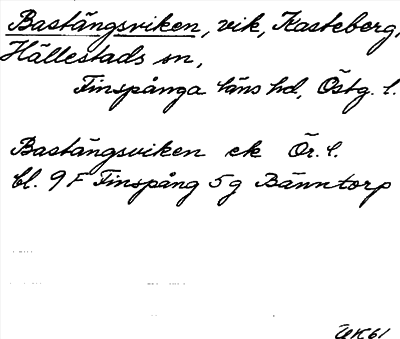 Bastängsviken, vik, Kasteberg,
Hällestads sn,
Finspånga läns hd, Östg. l.
Bastängsviken ek Ör. l.
bl. 9 F Finspång 5 g Bänntorp
ÜK 61